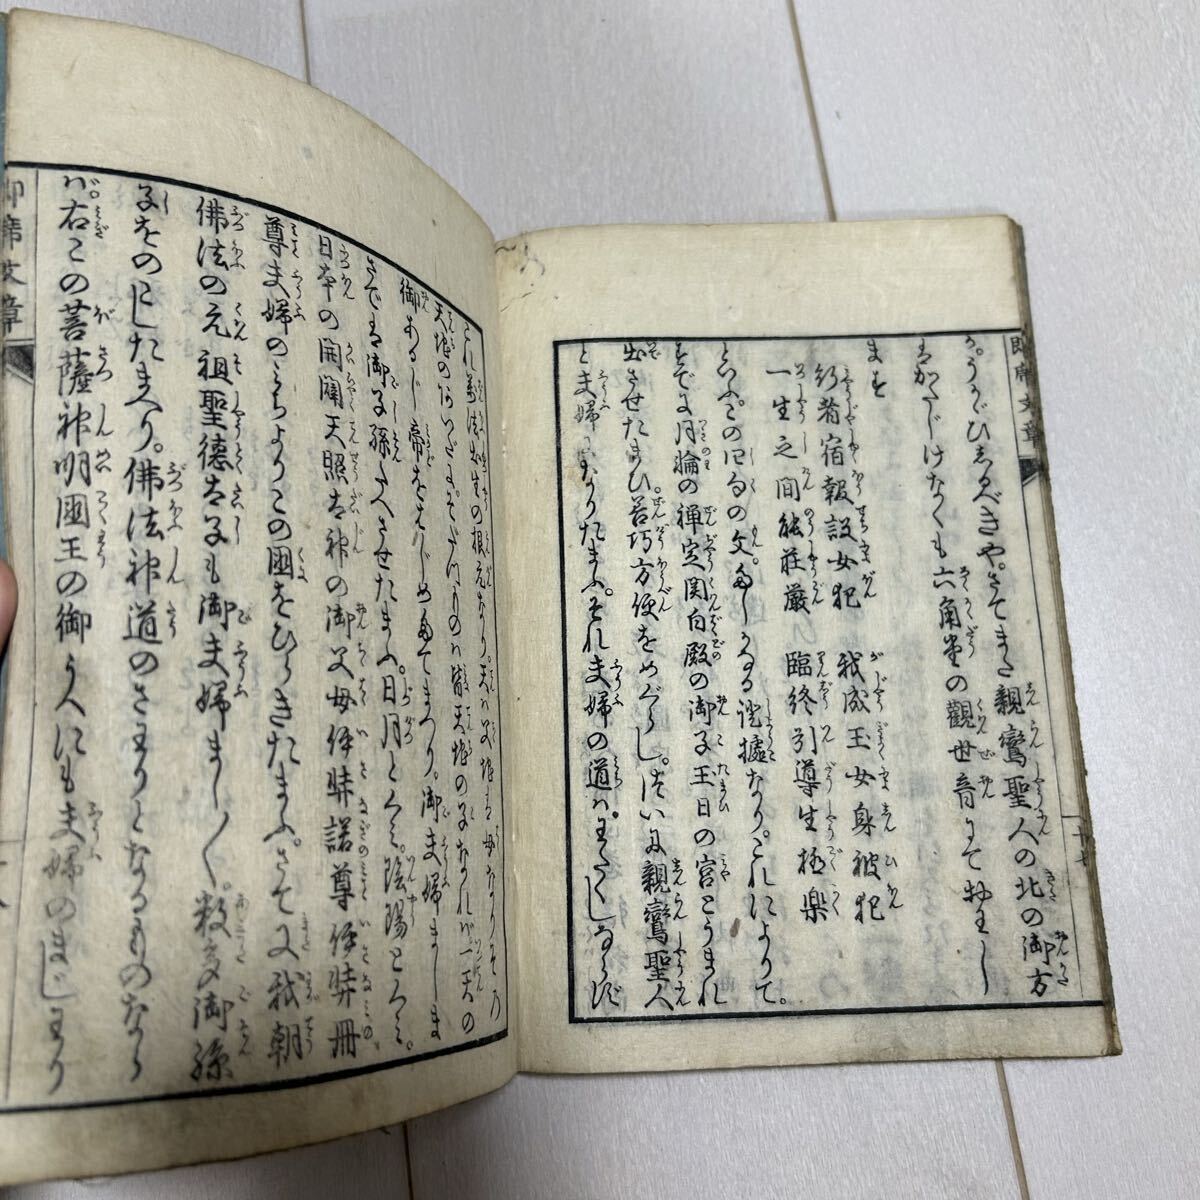 か。うかゞひしるべきや。さてまた親鸞聖人の北の御方
はかたじけなくも六角堂の觀世音にておわし
ます
行者宿報設女犯　我成玉女身被犯
一生之間能莊嚴　臨終引導生極樂
といふ。この四句の文。たしかなる證據なり。これによりて。
すでに月輪の禪定関白殿の御子玉日の宮とうまれ
出させたまひ善巧方便をめぐらし。ついに親鸞聖人
と夫婦になりたまふ。それ夫婦の道ハ。わたくしならず
これ萬法出生の根元なり。天は父地は母なりその
天地のあいだにそだつものハ皆天地の子なれバ一天の
御あるじ帝をはじめたてまつり。御夫婦ましま
さでは御子孫たへさせたまふ。日月といゝ。陰陽といゝ。
日本の開闢天照大神の御父母伊弉諾尊伊弉冊
尊夫婦のみちよりこの國をひらきたまふ。さて又我朝
佛法の元祖聖德太子も御夫婦まし〱。数多御孫
子をのこしたまへり。佛法神道のさわりとなるものなら
バ。右この菩薩神明國王の御うへにも夫婦のまじわり
即席文章
十七